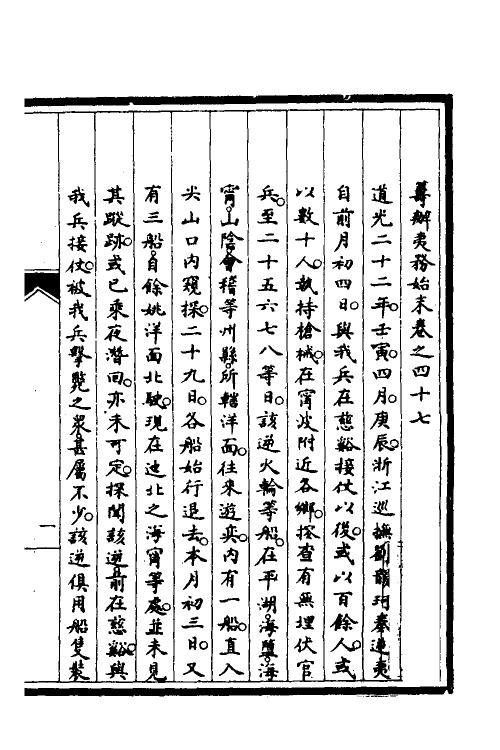 籌辦夷務始末卷之四十七
道光二十二年壬寅。四月。庚辰。浙江巡撫劉韻珂奏逆夷
自前月初四日。與我兵在慈谿接仗以後。或以百餘人。或
以數十人。執持槍械。在甯波附近各鄉。搜查有無埋伏官
兵。至二十五六七八等日。該逆火輪等船。在平湖。海鹽。海
甯。山陰。會稽等州縣。所轄洋面。往來遊奕。內有一船。直入
尖山口內窺探。二十九日。各船始行退去。本月初三日。又
有三船。自餘姚洋面北駛。現在迤北之海甯等處。並未見
其蹤跡。或已乘夜潛回。亦未可定。探聞該逆。前在慈谿。與
我兵接仗。被我兵擊斃之衆。甚屬不少。該逆俱用船隻裝
一